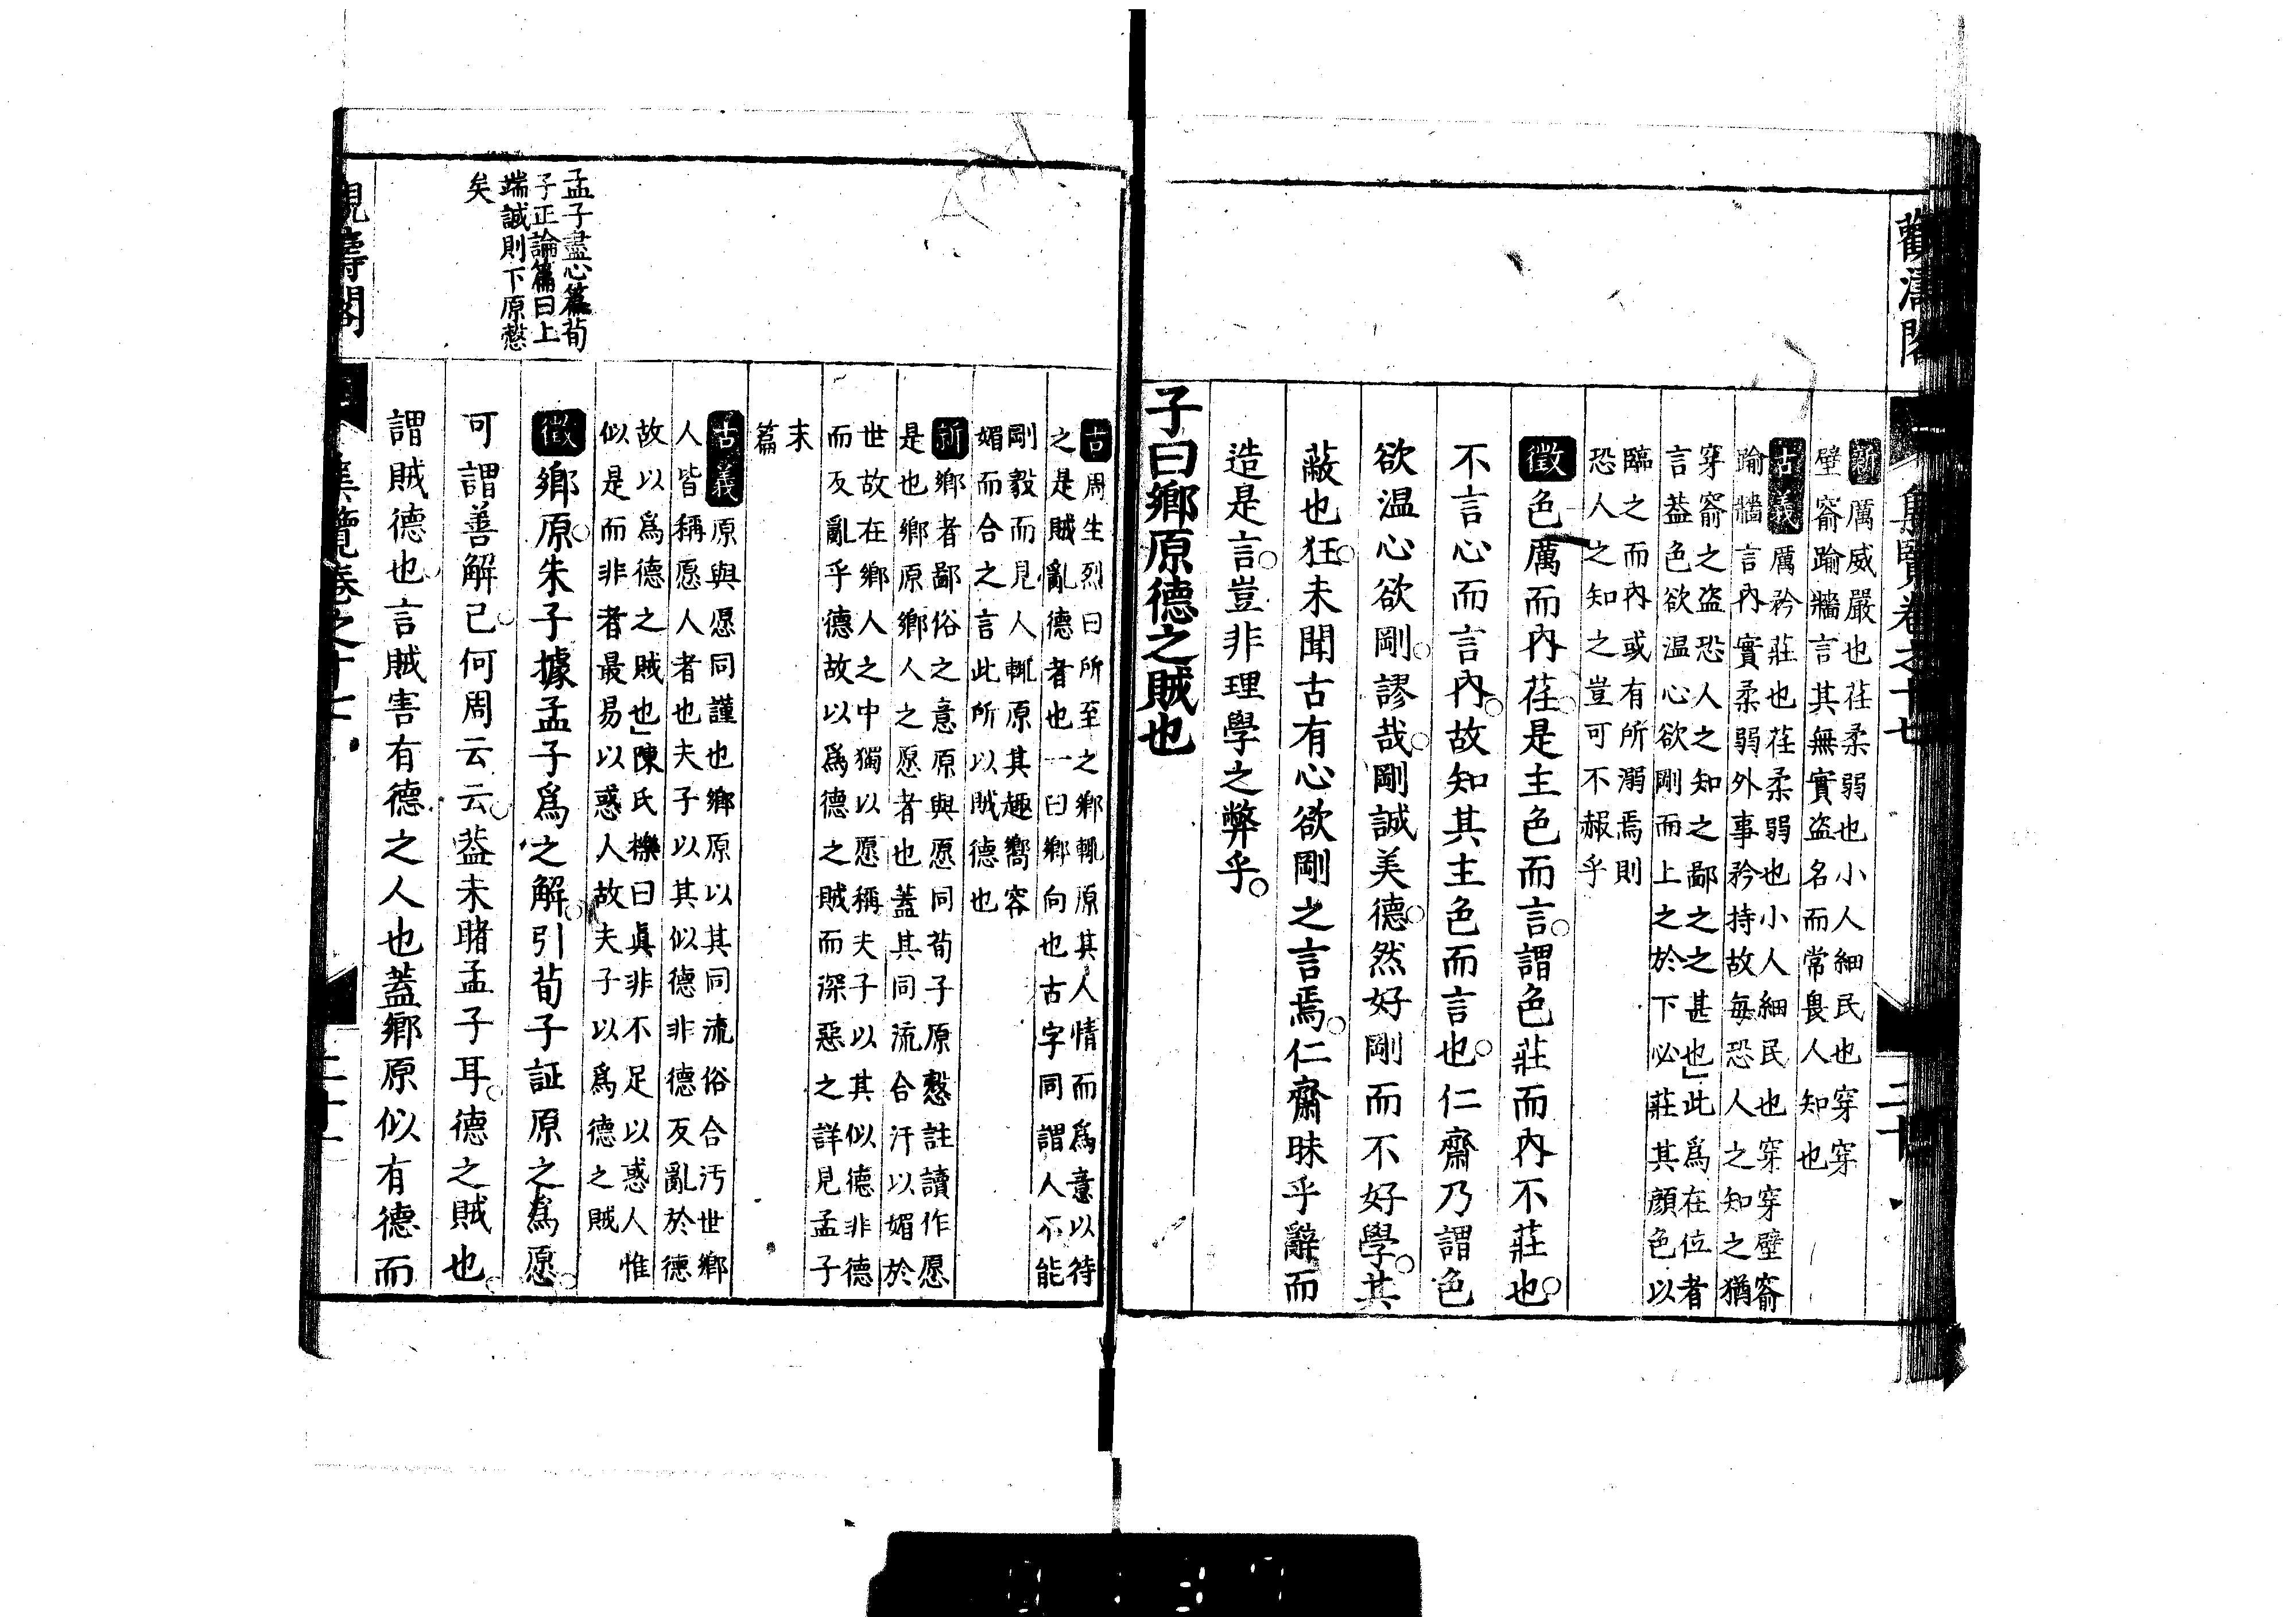 觀濤閣
集覽卷之十七
新 厲威嚴也荏柔弱也小人細民也穿穿
壁窬踰牆言其無實盜名而常畏人知也
古義 厲矜莊也荏柔弱也小人細民也穿穿壁窬
踰牆言內實柔弱外事矜持故每恐人之知之猶
穿窬之盜恐人之知之鄙之之甚也」此爲在位者
言葢色欲温心欲剛而上之於下必莊其顏色以
臨之而內或有所溺焉則
恐人之知之豈可不赧乎
徵 色厲而內荏是主色而言謂色莊而內不莊也
不言心而言內故知其主色而言也仁齋乃謂色
欲温心欲剛謬哉剛誠美德然好剛而不好學其
蔽也狂未聞古有心欲剛之言焉仁齋昧乎辭而
造是言豈非理學之弊乎
子曰鄉原德之賊也
古 周生烈曰所至之鄉輒原其人情而爲意以待
之是賊亂德者也一曰鄉向也古字同謂人不能
剛毅而見人輒原其趣嚮容
媚而合之言此所以賊德也
新 鄉者鄙俗之意原與愿同荀子原愨註讀作愿
是也鄉原鄉人之愿者也蓋其同流合汙以媚於
世故在鄉人之中獨以愿稱夫子以其似德非德
而反亂乎德故以爲德之賊而深惡之詳見孟子
末
篇
古義 原與愿同謹也鄉原以其同流俗合汚世鄉
人皆稱愿人者也夫子以其似德非德反亂於德
故以爲德之賊也」陳氏櫟曰眞非不足以惑人惟
似是而非者最易以惑人故夫子以爲德之賊
徵 鄉原朱子據孟子爲之解引荀子証原之爲愿
可謂善解已何周云云葢未睹孟子耳德之賊也
謂賊德也言賊害有德之人也蓋鄉原似有德而
孟子盡心篇荀
子正論篇曰上
端誠則下原愨
矣
觀濤閣
集覽卷之十七